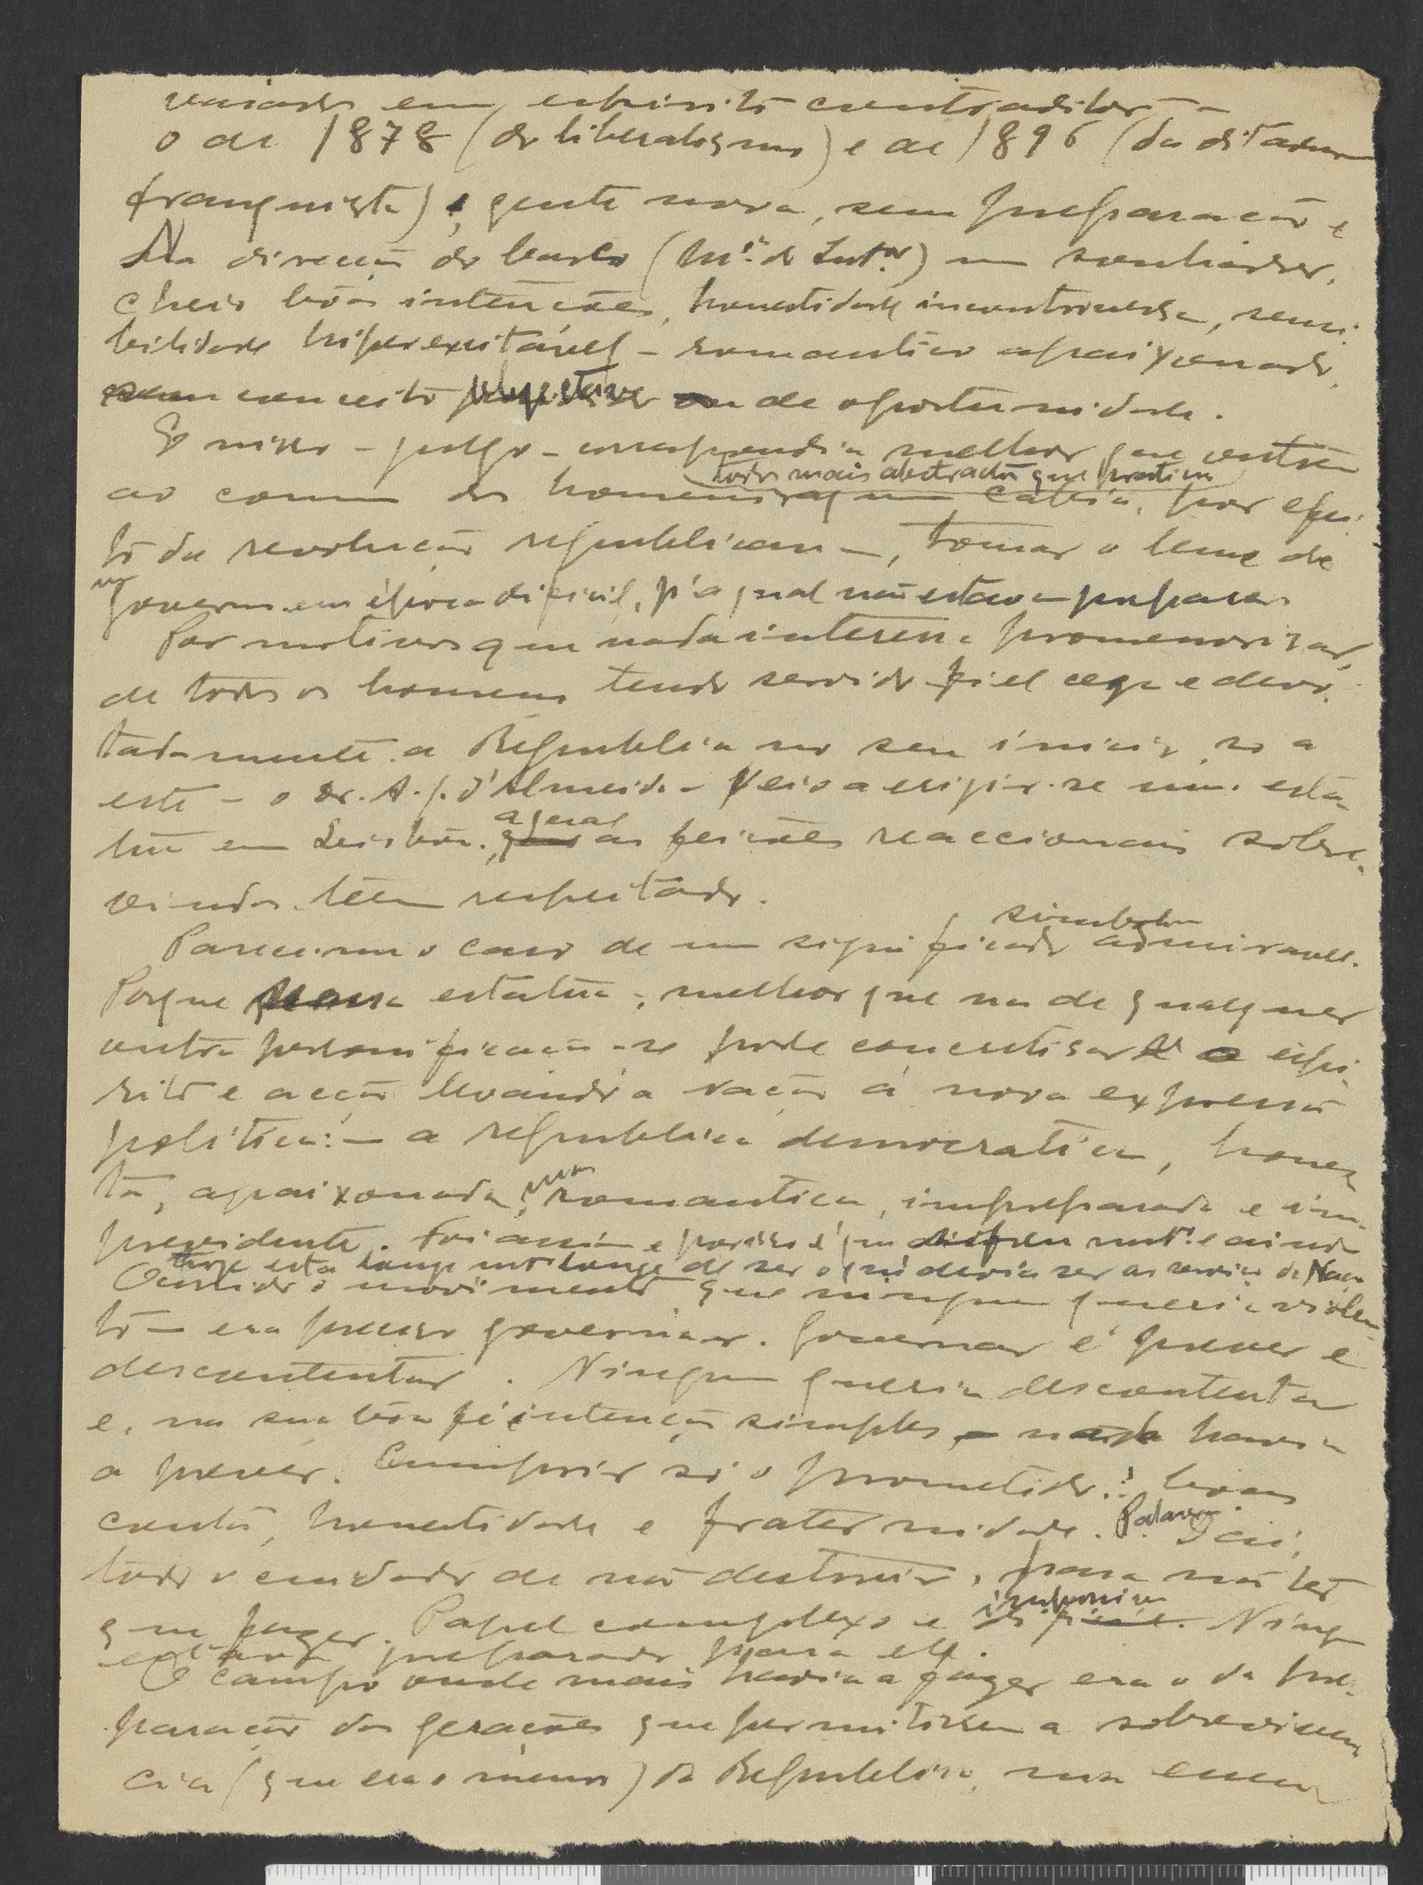 vasados em espirito contraditorio —
o de 1878 (do liberalismo) e de 1896 (da ditadura
franquista) gente nova, sem preparação e
Na direcção do barco (Mº do Intor) um sonhador,
cheio bôas intenções, honestidade incontroversa, sensi-
bilidade hiperexcitável – romantico apaixonado,
sem conceito de oportunidade.
E nisso – julgo – correspondia melhor que outrem
todos mais abstractos que praticos
ao comum dos homens a quem cabia, por efei-
to da revolução republicana –, tomar o leme do
governo em época dificil, p'á qual não estavam preparados
Por motivos que nada interessa promenorizar,
de todos os homens tendo servido fiel cega e devo-
tadamente a Republica no seu inicio, só a
este – o dr. A. J. d'Almeida – veio a erigir-se uma está-
tua em Lisbôa. a qual as feições reaccionais sobre-
vindas teem respeitado.
simbolo
Parece-me o caso de um significado admiravel.
Porque nessa estatua, melhor que na de qualquer
outra personificação se pode concretisar o espi-
rito e acção levando a nação á nova expressão
politica: – a republica democratica, hones-
ta, apaixonada, romantica, impreparada e im-
previdente. Foi assim e por isso é que ainda
hoje está longe mto longe de ser o que devia ser ao serviço da Nação
o movimento que ninguem queria violen-
to – era preciso governar. Governar é prever e
descontentar. Ninguem queria descontentar
e, na sua bôa fé e intenção simples, nada havia
a prever. Cumprir só o prometido: boas
contas, honestidade e fraternidade. Palavra! Daí,
todo o cuidado de não destruir, para não ter
que fazer. Papel complexo e dificil. Ninguem
estava preparado para ele.
O campo onde mais havia a fazer era o da pre-
paração das gerações que permitissem a sobreviven-
cia (que era o menos) da Republica, na